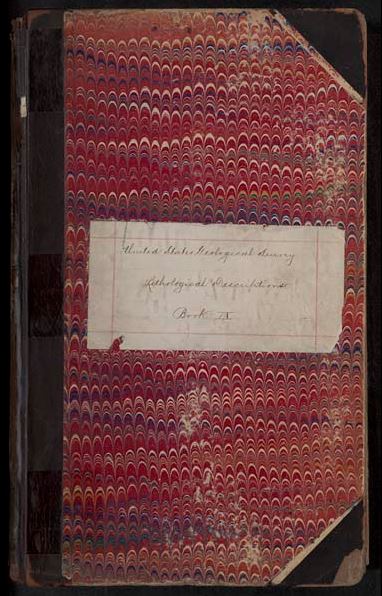 United States Geological Survey
Lithological Descriptions
Book IX